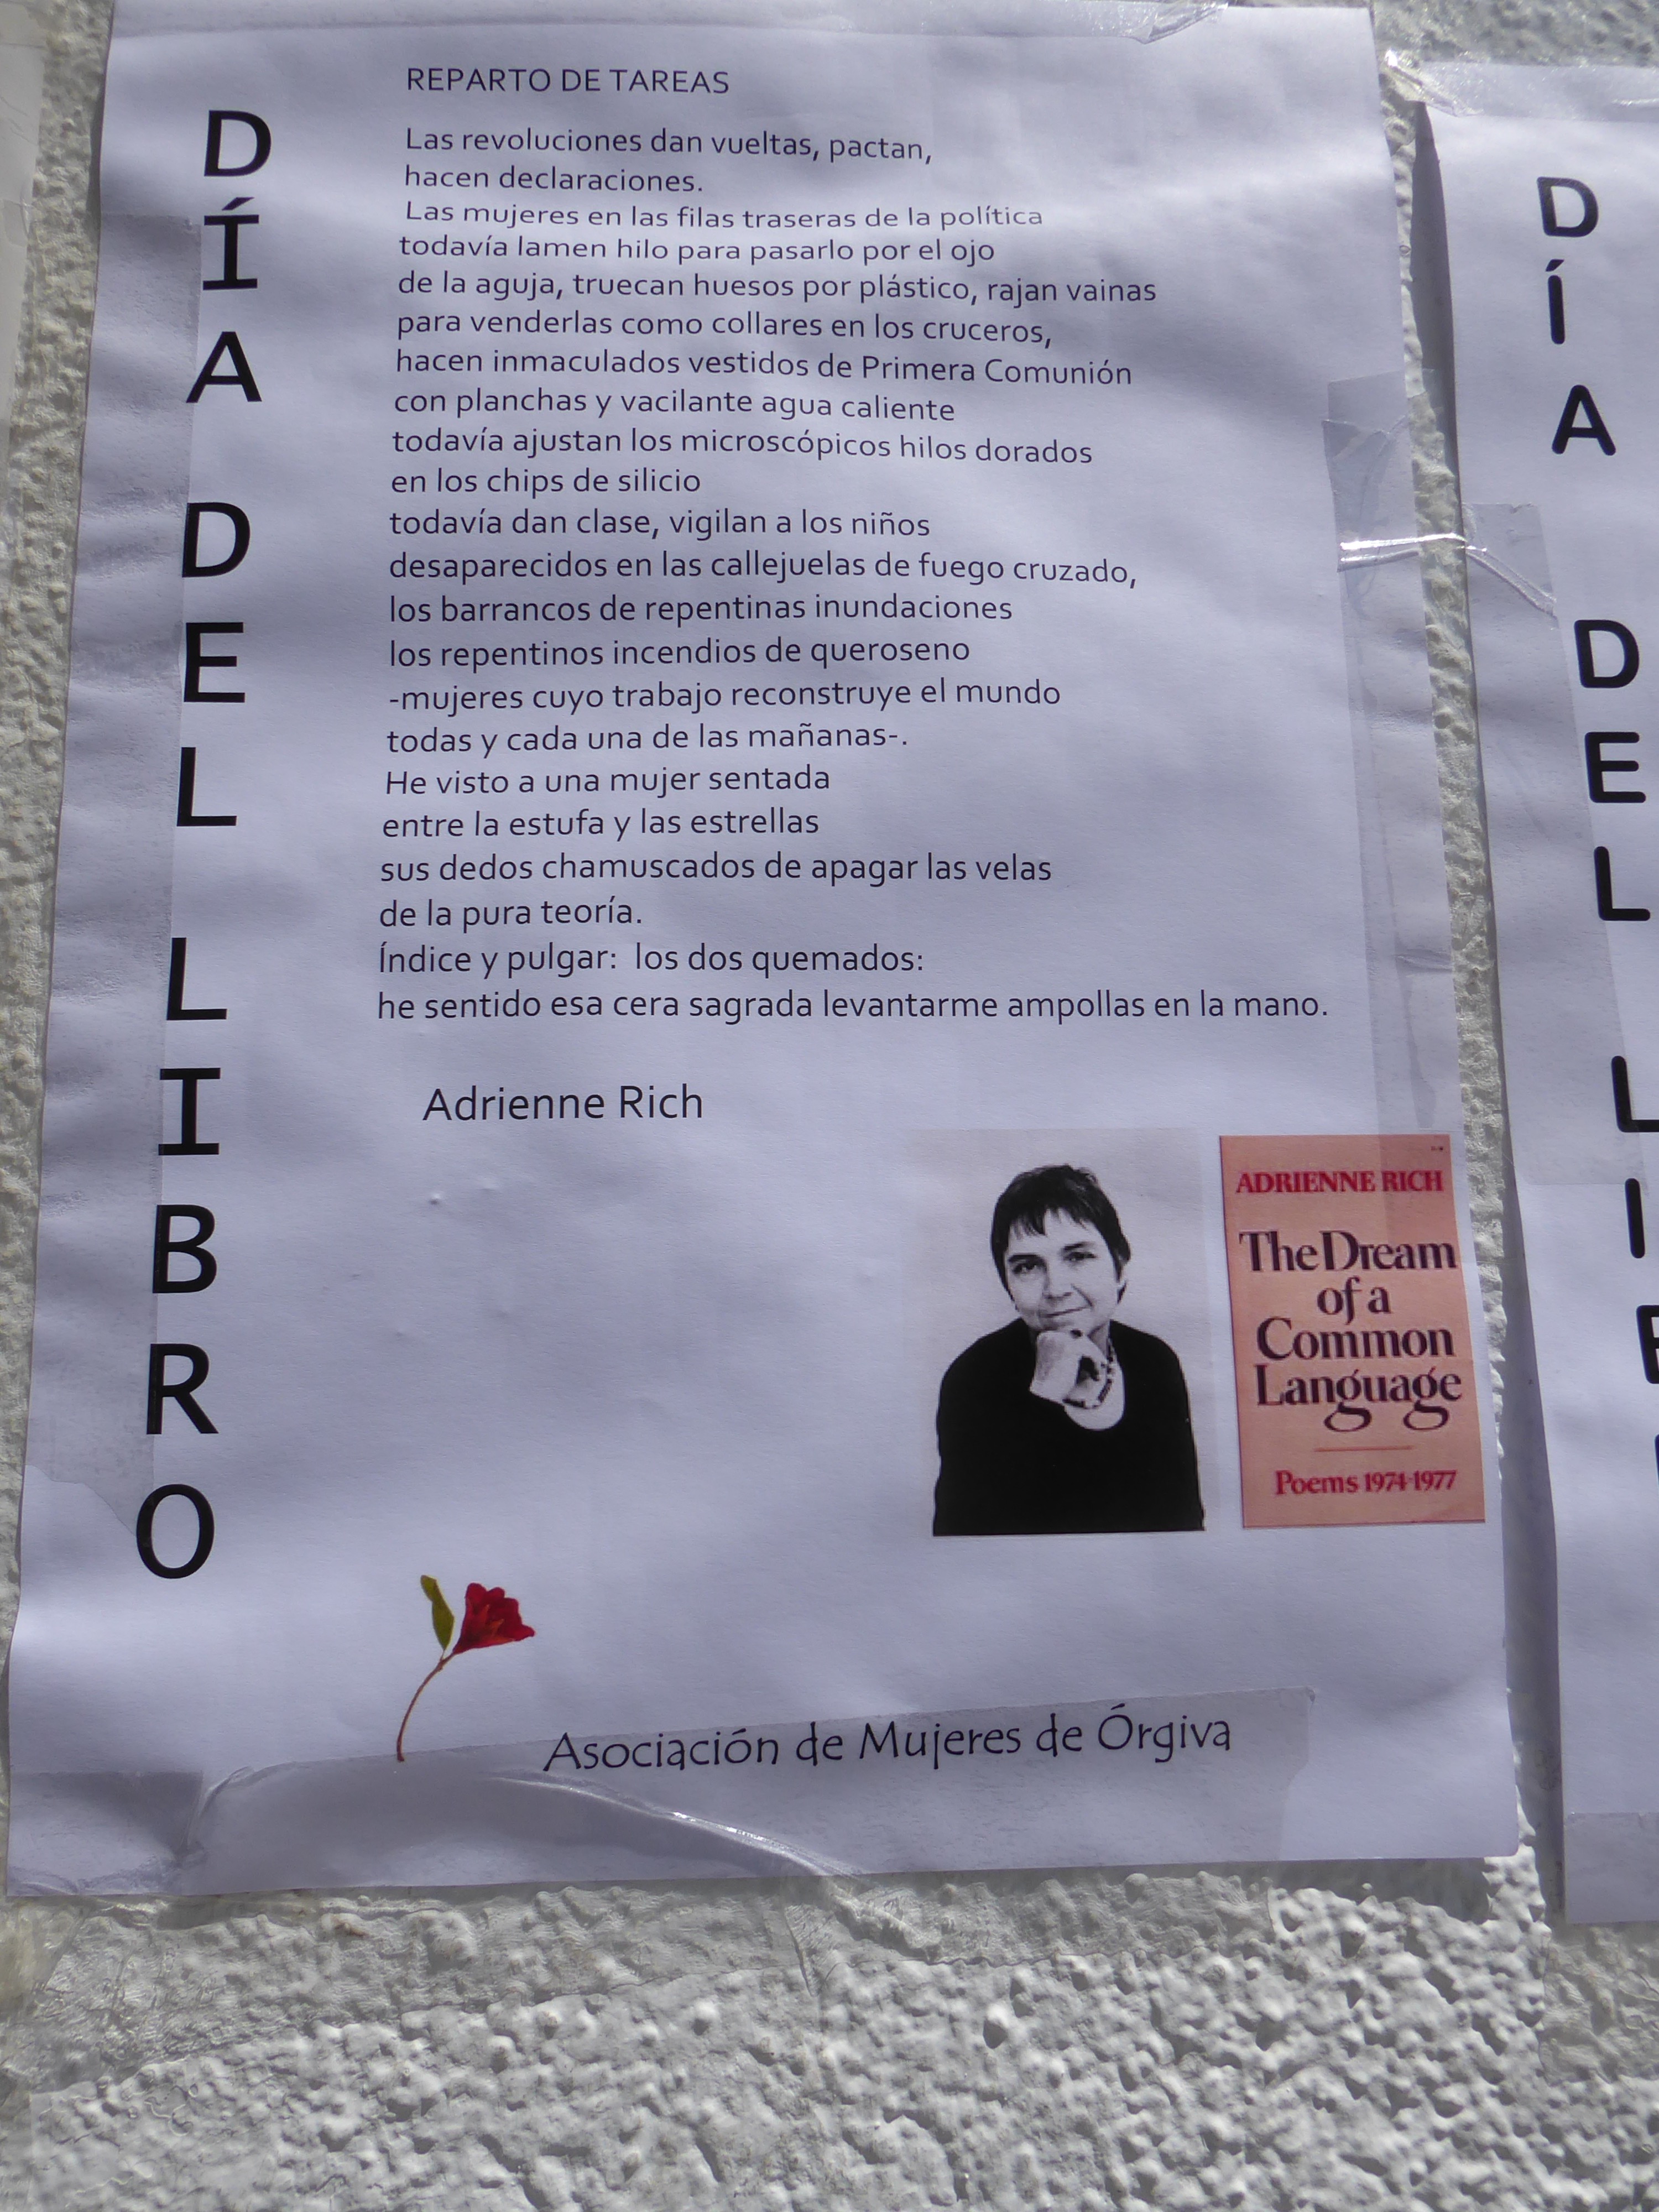 REPARTO DE TAREAS
DÍA DEL LIBRO
Las revoluciones dan vueltas, pactan,
hacen declaraciones.
Las mujeres en las filas traseras de la política
todavía lamen hilo para pasarlo por el ojo
de la aguja, truecan huesos por plástico, rajan vainas
para venderlas como collares en los cruceros,
hacen inmaculados vestidos de Primera Comunión
con planchas y vacilante agua caliente
todavía ajustan los microscópicos hilos dorados
en los chips de silicio
todavía dan clase, vigilan a los niños
desaparecidos en las callejuelas de fuego cruzado,
los barrancos de repentinas inundaciones
los repentinos incendios de queroseno
-mujeres cuyo trabajo reconstruye el mundo
todas y cada una de las mañanas-.
He visto a una mujer sentada
entre la estufa y las estrellas
sus dedos chamuscados de apagar las velas
de la pura teoría.
Índice y pulgar: los dos quemados:
he sentido esa cera sagrada levantarme ampollas en la mano.
Adrienne Rich
ADRIENNE RICH
The Dream
of a
Common
Language
Poems 1974-1977
Asociación de Mujeres de Órgiva
DÍA DEL LI